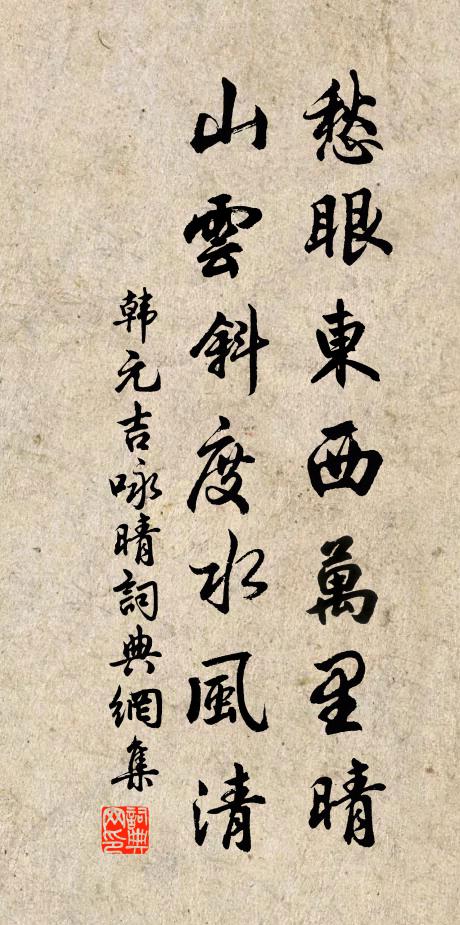 愁眼東西萬里晴
山雲斜度水風清
韩元吉咏晴詞典網集
詞典網印